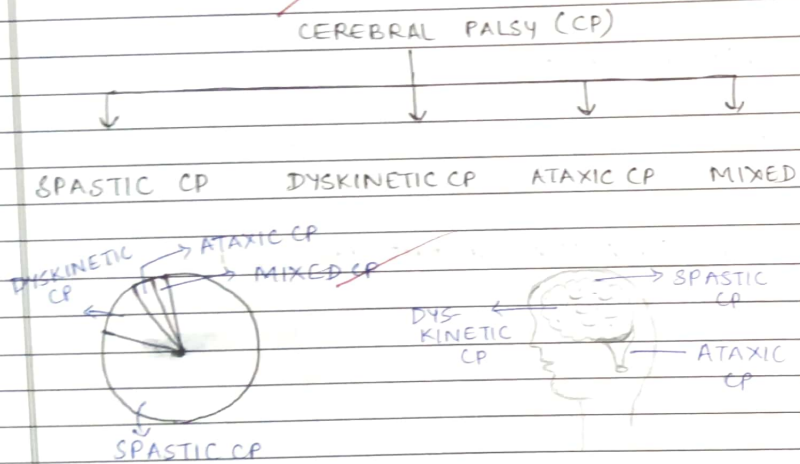 CEREBRAL PALSY (CP)
SPASTIC CP DYSKINETIC CP ATAXIC CP MIXED
DYSKINETIC
CP
ATAXIC CP
MIXED CP
SPASTIC CP
DYS-
KINETIC
CP
SPASTIC
CP
ATAXIC
CP